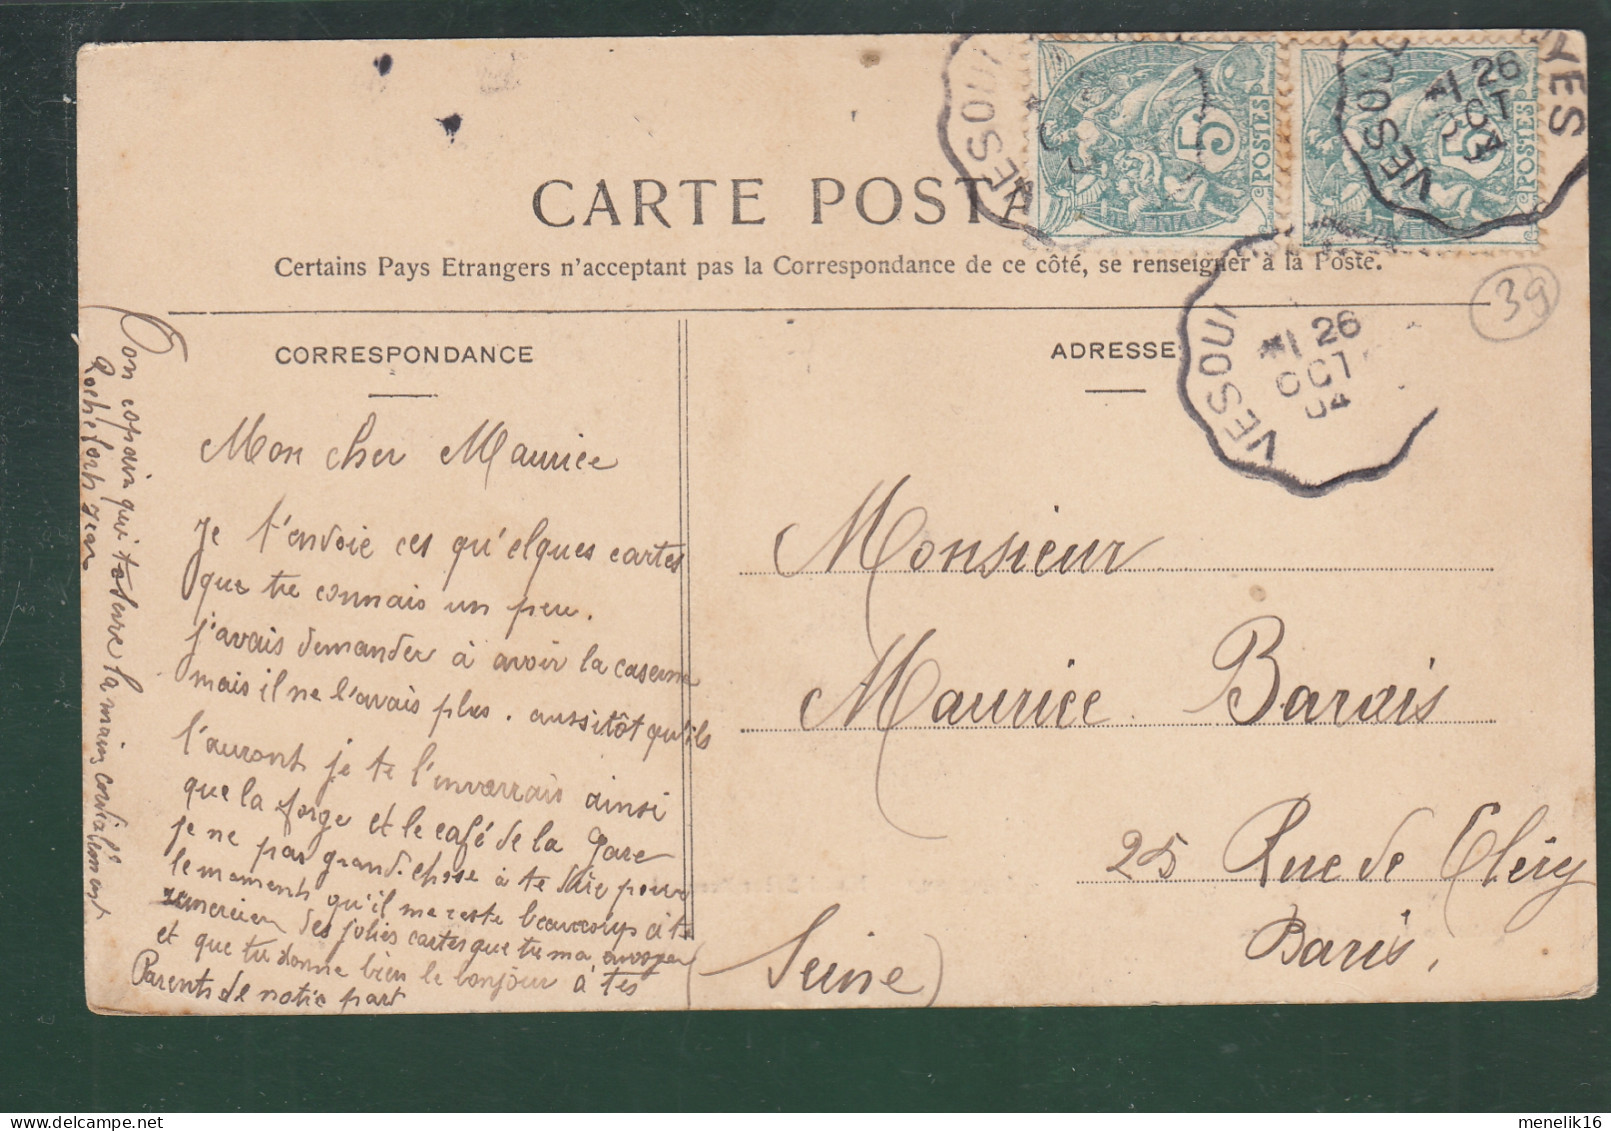 CARTE POSTA
Certains Pays Etrangers n'acceptant pas la Correspondance de ce côté, se renseigner à la Poste.
5
POSTES
5
POSTES
VESOUL
VESOUL
26
OCT
04
YES
39
VESOUL
26
OCT
04
CORRESPONDANCE
ADRESSE
Mon cher Maurice
Je t'envoie ces qu'elques cartes
que tu connais un peu.
j'avais demander à avoir la caserne
mais il ne l'avais plus. aussitôt qu'ils
l'auront je te l'inverrais ainsi
que la forge et le café de la Gare
je ne pas grand-chose à te dire pour
le moments qu'il me reste beaucoup à te
remercier des jolies cartes que tu ma envoyer
et que tu donne bien le bonjour à tes
Parents de notre part
Ton copain qui te serre la main cordialement
Rochefort Jean
Monsieur
Maurice Barais
25 Rue de Cléry
Paris,
(Seine)
menelik16